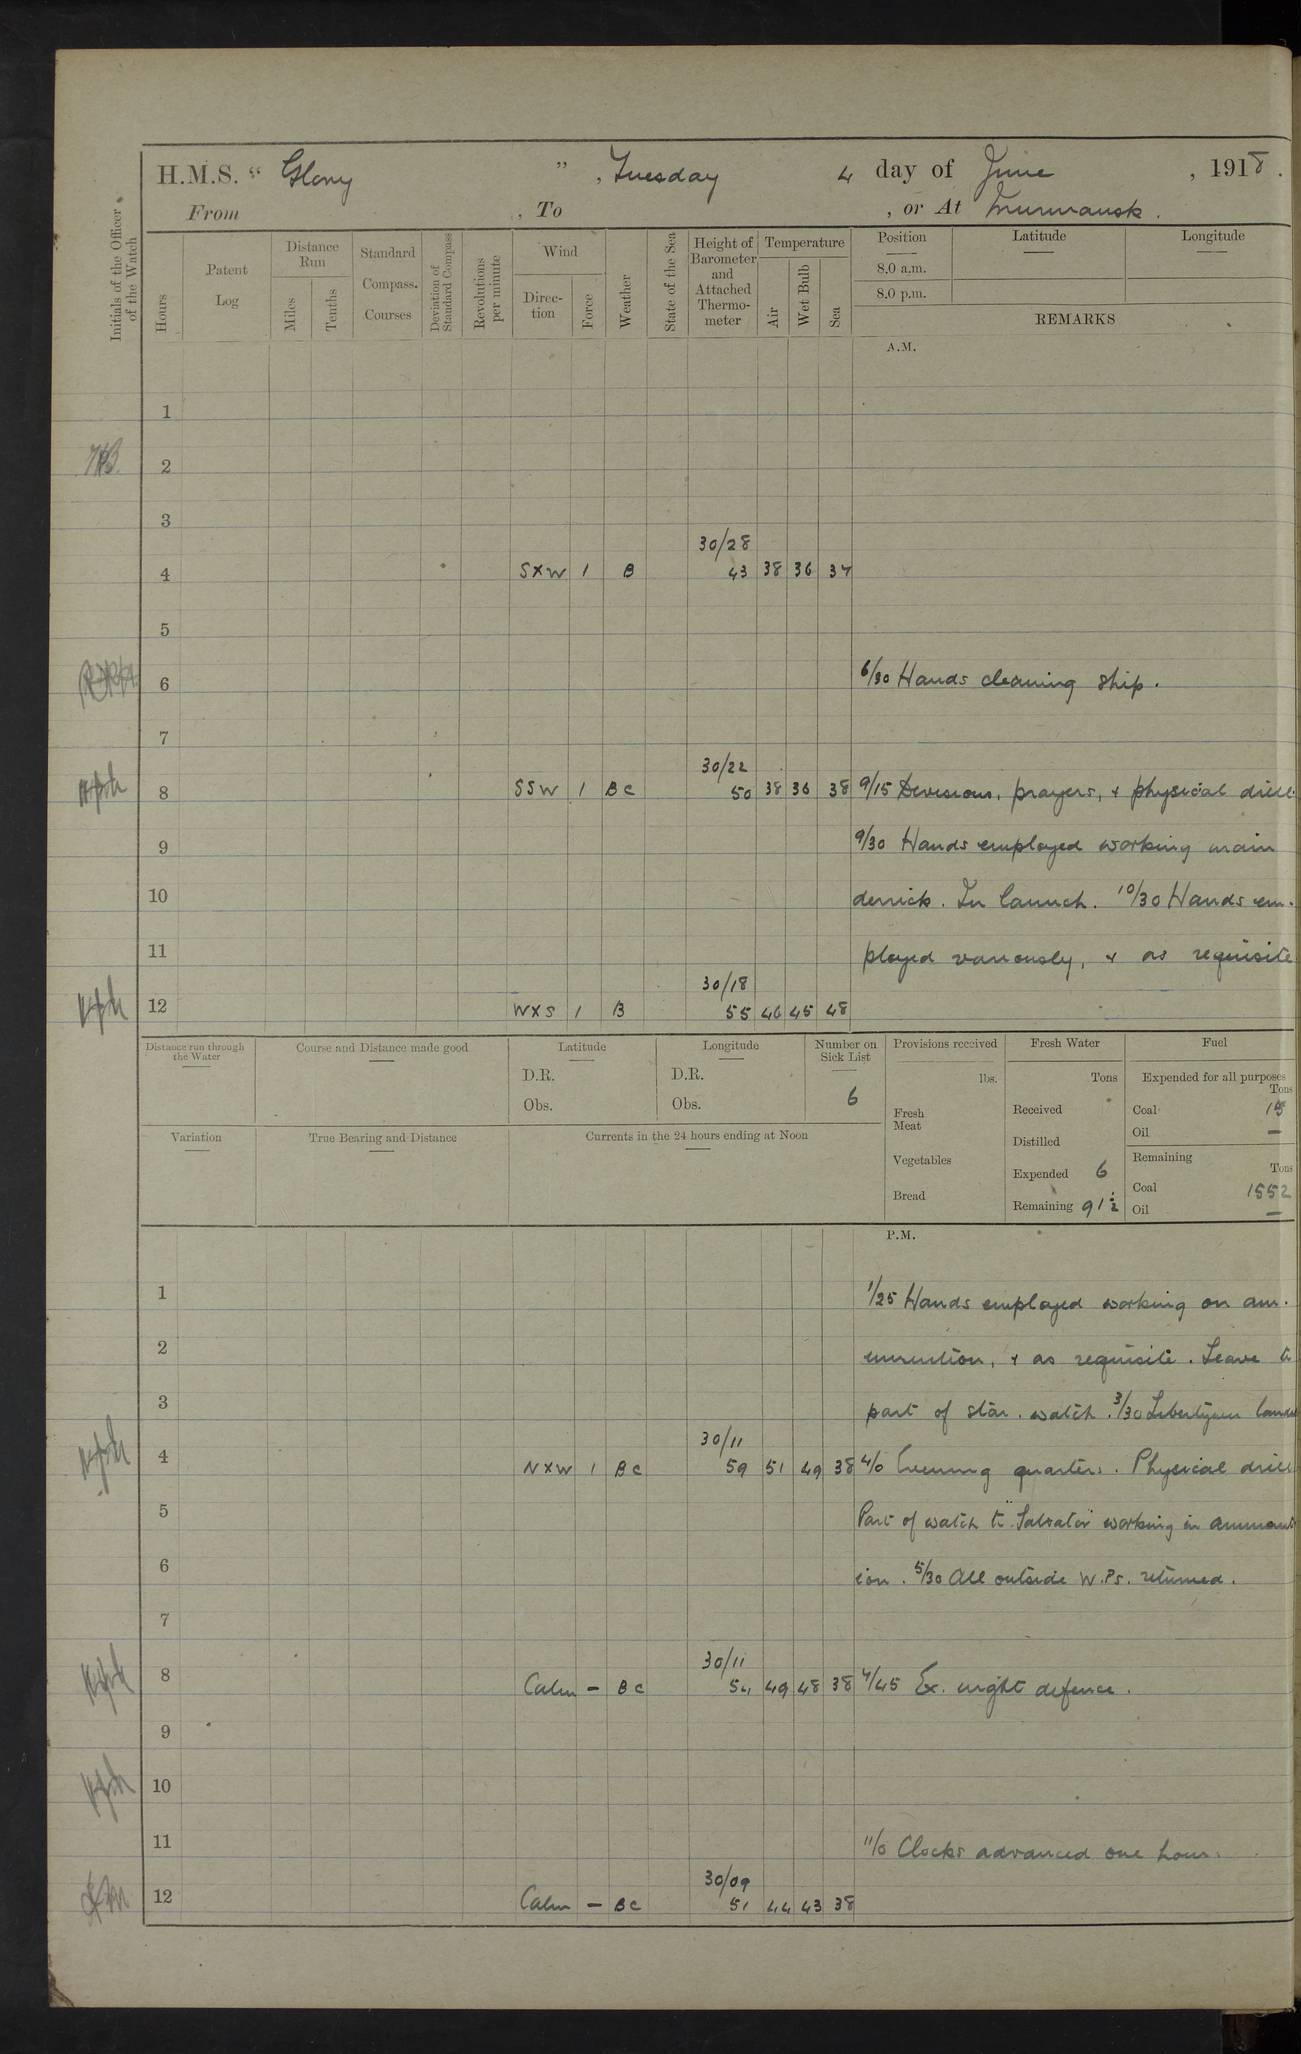 H.M.S. “ Glory ” , Tuesday 4 day of June , 1918 .
From , To , or At Murmansk .
Initials of the Officer of the Watch
Hours
Patent Log
Distance Run
Miles
Tenths
Standard Compass. Courses
Deviation of Standard Compass
Revolutions per minute
Wind
Direc-tion
Force
Weather
State of the Sea
Height of Barometer and Attached Thermo-meter
Temperature
Air
Wet Bulb
Sea
Position
Latitude
Longitude
8.0 a.m.
8.0 p.m.
REMARKS
A.M.
1
2
3
30/28
4 SXW 1 B 43 38 36 37
5
6 6/30 Hands cleaning ship.
7
30/22
8 SSW 1 BC 50 38 36 38 9/15 Divisions, prayers, & physical drill.
9 9/30 Hands employed working main
10 derrick. In launch. 10/30 Hands em-
11 ployed variously, & as requisite
30/18
12 WXS 1 B 55 46 45 48
Distance run through the Water
Course and Distance made good
Latitude
D.R.
Obs.
Longitude
D.R.
Obs.
Number on Sick List
6
Provisions received
lbs.
Fresh Meat
Vegetables
Bread
Fresh Water
Tons
Received
Distilled
Expended 6
Remaining 91½
Fuel
Expended for all purposes
Tons
Coal 15
Oil —
Remaining
Tons
Coal 1552
Oil —
Variation
True Bearing and Distance
Currents in the 24 hours ending at Noon
P.M.
1 1/25 Hands employed working on am-
2 munition, & as requisite. Leave to
3 part of star. watch. 3/30 Libertymen landed
30/11
4 NXW 1 BC 59 51 49 38 4/0 Evening quarters. Physical drill
5 Part of watch to "Salvator" working in ammunit
6 ion. 5/30 All outside W.Ps. returned.
7
30/11
8 Calm – BC 54 49 48 38 7/45 Ex. night defence.
9
10
11 11/0 Clocks advanced one hour.
30/09
12 Calm – BC 51 44 43 38